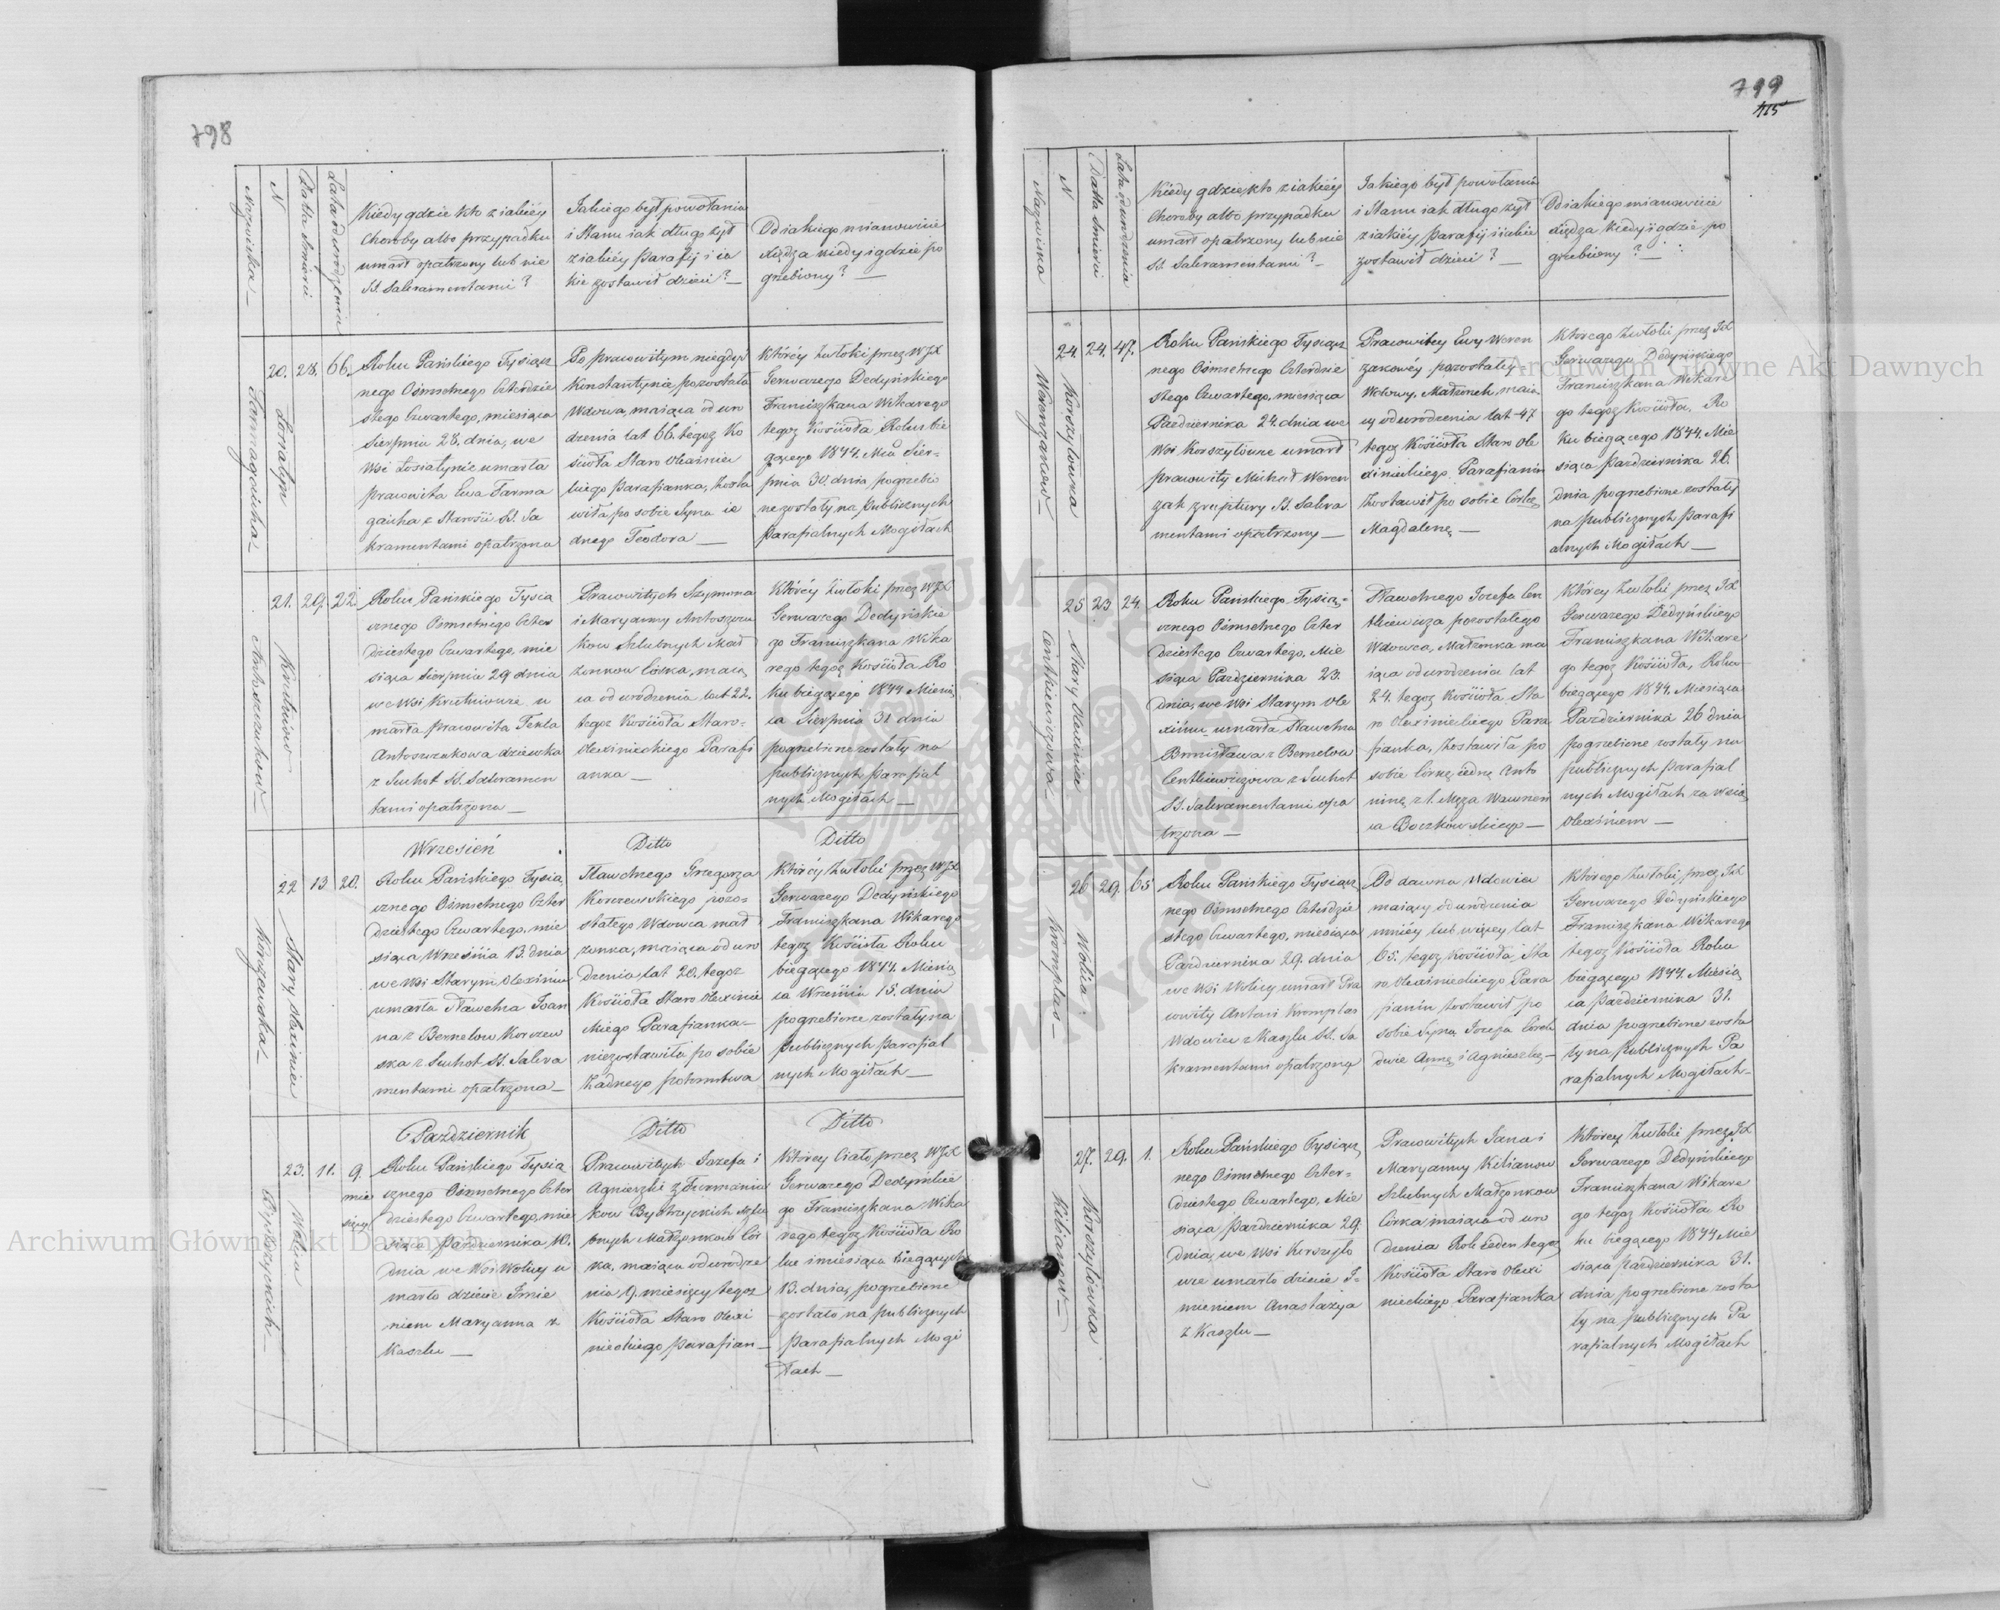 798
Nazwiska
N
Datta śmierci
Lata od urodzenia
Kiedy gdzie kto z iakiéy
Choroby albo przypadku
umarł opatrzony lub nie
SS. Sakramentami?
Jakiego był powołania
i Stanu iak długo żył
z iakiéy Parafij i ia
kie zostawił dzieci?
Od iakiego mianowicie
Xiędza kiedy i gdzie po
grzebiony?
Tarmagaicha
20.
28.
66.
Roku Pańskiego Tysiącz
nego Ośmsetnego Czterdzie
stego Czwartego, miesiąca
Sierpnia 28. dnia, we
Wsi Łosiatynie umarła
pracowita Ewa Tarma
gaicha z Starości SS. Sa
kramentami opatrzona
Po pracowitym niegdyś
Konstantynie pozostała
Wdowa, maiąca od uro
dzenia lat 66. tegoż Ko
ścioła Staro Olexiniec
kiego Parafianka, zosta
wiła po sobie Syna ie
dnego Teodora
Któréy Zwłoki przez WJX
Gerwazego Dedyńskiego
Franciszkana Wikarego
tegoż Kościoła Roku bie
gącego 1844. Mca Sier-
pnia 30. dnia, pogrzebio
ne zostały na Publicznych
Parafialnych Mogiłach
21.
29.
22
Roku Pańskiego Tysią
cznego Ośmsetnego Czter
dziestego Czwartego, mie
siąca Sierpnia 29 dnia
we Wsi Krutniowie u
marła pracowita Tekla
Antoszczukowa dziewka
z Suchot SS. Sakramen
tami opatrzona
Pracowitych Szymona
i Maryanny Antoszczu
kow Szlubnych Mał
żonkow Córka, maią
ca od urodzenia lat 22.
tegoż Kościoła Staro-
Olexinieckiego Parafi
anka
Któréy Zwłoki przez WJX
Gerwazego Dedyńskie
go Franciszkana Wika
rego tegoż Kościoła Ro
ku biegącego 1844 Miesią
ca Sierpnia 31 dnia
pogrzebione zostały na
publicznych Parafial
nych Mogiłach
Korczewska
Stary Olexiniec
22
13
20.
Wrzesień
Roku Pańskiego Tysią
cznego Ośmsetnego Czter
dziestego Czwartego, mie
siąca Września 13. dnia
we Wsi Starym Olexińcu
umarła Sławetna Joan
na z Bernelow Korczew
ska z Suchot SS. Sakra
mentami opatrzona
Ditto
Sławetnego Grzegorza
Korczewskiego pozo-
stałego Wdowca mał
żonka, maiąca od uro
dzenia lat 20. tegoż
Kościoła Staro Olexinie
ckiego Parafianka
niezostawiła po sobie
żadnego potomstwa
Ditto
Któréy Zwłoki przez WJX
Gerwazego Dedyńskiego
Franciszkana Wikarego
tegoż Kościoła Roku
biegącego 1844. Miesią
ca Września 15. dnia
pogrzebione zostały na
Publicznych Parafial
nych Mogiłach
Bystrzyckich
Wolica
23.
11.
9.
mie
sięcy
Pazdziernik
Roku Pańskiego Tysią
cznego Ośmsetnego Czter
dziestego Czwartego, mie
siąca Pazdziernika 10.
dnia we Wsi Wolicy u
marło dziecie Imie
niem Maryanna z
Kaszlu
Ditto
Pracowitych Jozefa i
Agnieszki z Furmaniu
kow Bystrzyckich Szlu
bnych Małżonkow Cór
ka, maiąca od urodze
nia 9. miesięcy tegoż
Kościoła Staro Olexi
nieckiego Parafian
Ditto
Któréy Ciało przez WJX
Gerwazego Dedyńskie
go Franciszkana Wika
rego tegoż Kościoła Ro
ku i miesiąca biegących
13. dnia, pogrzebione
zostało na publicznych
Parafialnych Mogi
łach
799
415
Nazwiska
N
Datta śmierci
Lata od urodzenia
Kiedy gdzie, kto z iakiéy
Choroby albo przypadku
umarł opatrzony lub nie
SS. Sakramentami?
Jakiego był powołania
i Stanu iak długo żył
z iakiéy Parafij i iakie
zostawił dzieci?
Od iakiego mianowicie
Xiędza Kiedy i gdzie po
grzebiony?
Werenzakow
Korszyłowka
24.
24.
47.
Roku Pańskiego Tysiącz
nego Ośmsetnego Czterdzie
stego Czwartego, miesiąca
Pazdziernika 24. dnia we
Wsi Korszyłowce umarł
pracowity Michał Weren
zak z ruptury SS. Sakra
mentami opatrzony
Pracowitey Ewy Weren
zakowéy pozostałey
Wdowy, Małżonek, maią
cy od urodzenia lat 47
tegoż Kościoła Staro Ole
xinieckiego Parafianin
Zostawił po sobie Córkę
Magdalenę
Którego Zwłoki przez JX
Gerwazego Dedyńskiego
Franciszkana Wikare
go tegoż Kościoła, Ro
ku biegącego 1844. Mie
siąca Pazdziernika 26.
dnia pogrzebione zostały
na Publicznych Parafi
alnych Mogiłach
Centkiewiczowa
Stary Olexiniec
25
23
24.
Roku Pańskiego Tysią-
cznego Ośmsetnego Czter
dziestego Czwartego, Mie
siąca Pazdziernika 23.
dnia, we Wsi Starym Ole
xińcu umarła Sławetna
Bronisława z Bernelow
Centkiewiczowa z Suchot
SS. Sakramentami opa
trzona
Sławetnego Jozefa Cen
tkiewicza pozostałego
Wdowca, Małżonka ma
iąca od urodzenia lat
24. tegoż Kościoła Sta
ro Olexinieckiego Para
fianka, Zostawiła po
sobie Córkę iedną Anto
ninę z 1. Męża Wawrzeń
ca Boczkowskiego
Któréy Zwłoki przez JX
Gerwazego Dedyńskiego
Franciszkana Wikare
go tegoż Kościoła, Roku
biegącego 1844. Miesiąca
Pazdziernika 26 dnia
pogrzebione zostały na
publicznych Parafial
nych Mogiłach za wsią
Olexińcem
Kromplas
Wolica
26
29.
65
Roku Pańskiego Tysiącz
nego Ośmsetnego Czterdzie
stego Czwartego, miesiąca
Pazdziernika 29. dnia
we Wsi Wolicy umarł Pra
cowity Antoni Kromplas
Wdowiec z Kaszlu SS. Sa
kramentami opatrzony
Od dawna Wdowiec
maiący od urodzenia
mniéy lub więcéy lat
65. tegoż Kościoła Sta
ro Olexinieckiego Para
fianin Zostawił po
sobie Syna Jozefa Córki
dwie Annę i Agnieszkę
Którego Zwłoki przez JX
Gerwazego Dedyńskiego
Franciszkana Wikarego
tegoż Kościoła Roku
biegącego 1844. Miesią
ca Pazdziernika 31.
dnia pogrzebione zosta
ły na Publicznych Pa
rafialnych Mogiłach
Kilianow
Korszyłowka
27.
29.
1.
Roku Pańskiego Tysiącz
nego Ośmsetnego Czter-
dziestego Czwartego, Mie
siąca Pazdziernika 29.
dnia, we Wsi Korszyło
wce umarło dziecie I-
mieniem Anastazya
z Kaszlu
Pracowitych Jana i
Maryanny Kilianow
Szlubnych Małżonkow
Córka maiąca od uro
dzenia Rok ieden tegoż
Kościoła Staro Olexi
nieckiego Parafianka
Któréy Zwłoki przez JX
Gerwazego Dedyńskiego
Franciszkana Wikare
go tegoż Kościoła Ro
ku biegącego 1844 Mie
siąca Pazdziernika 31.
dnia pogrzebione zosta
ły na publicznych Pa
rafialnych Mogiłach
Archiwum Główne Akt Dawnych
Archiwum Główne Akt Dawnych